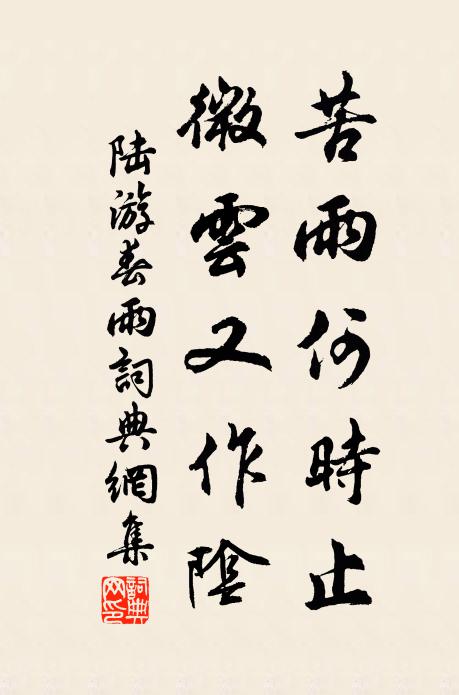 苦雨何時止
微雲又作陰
陆游春雨詞典網集
詞典网印